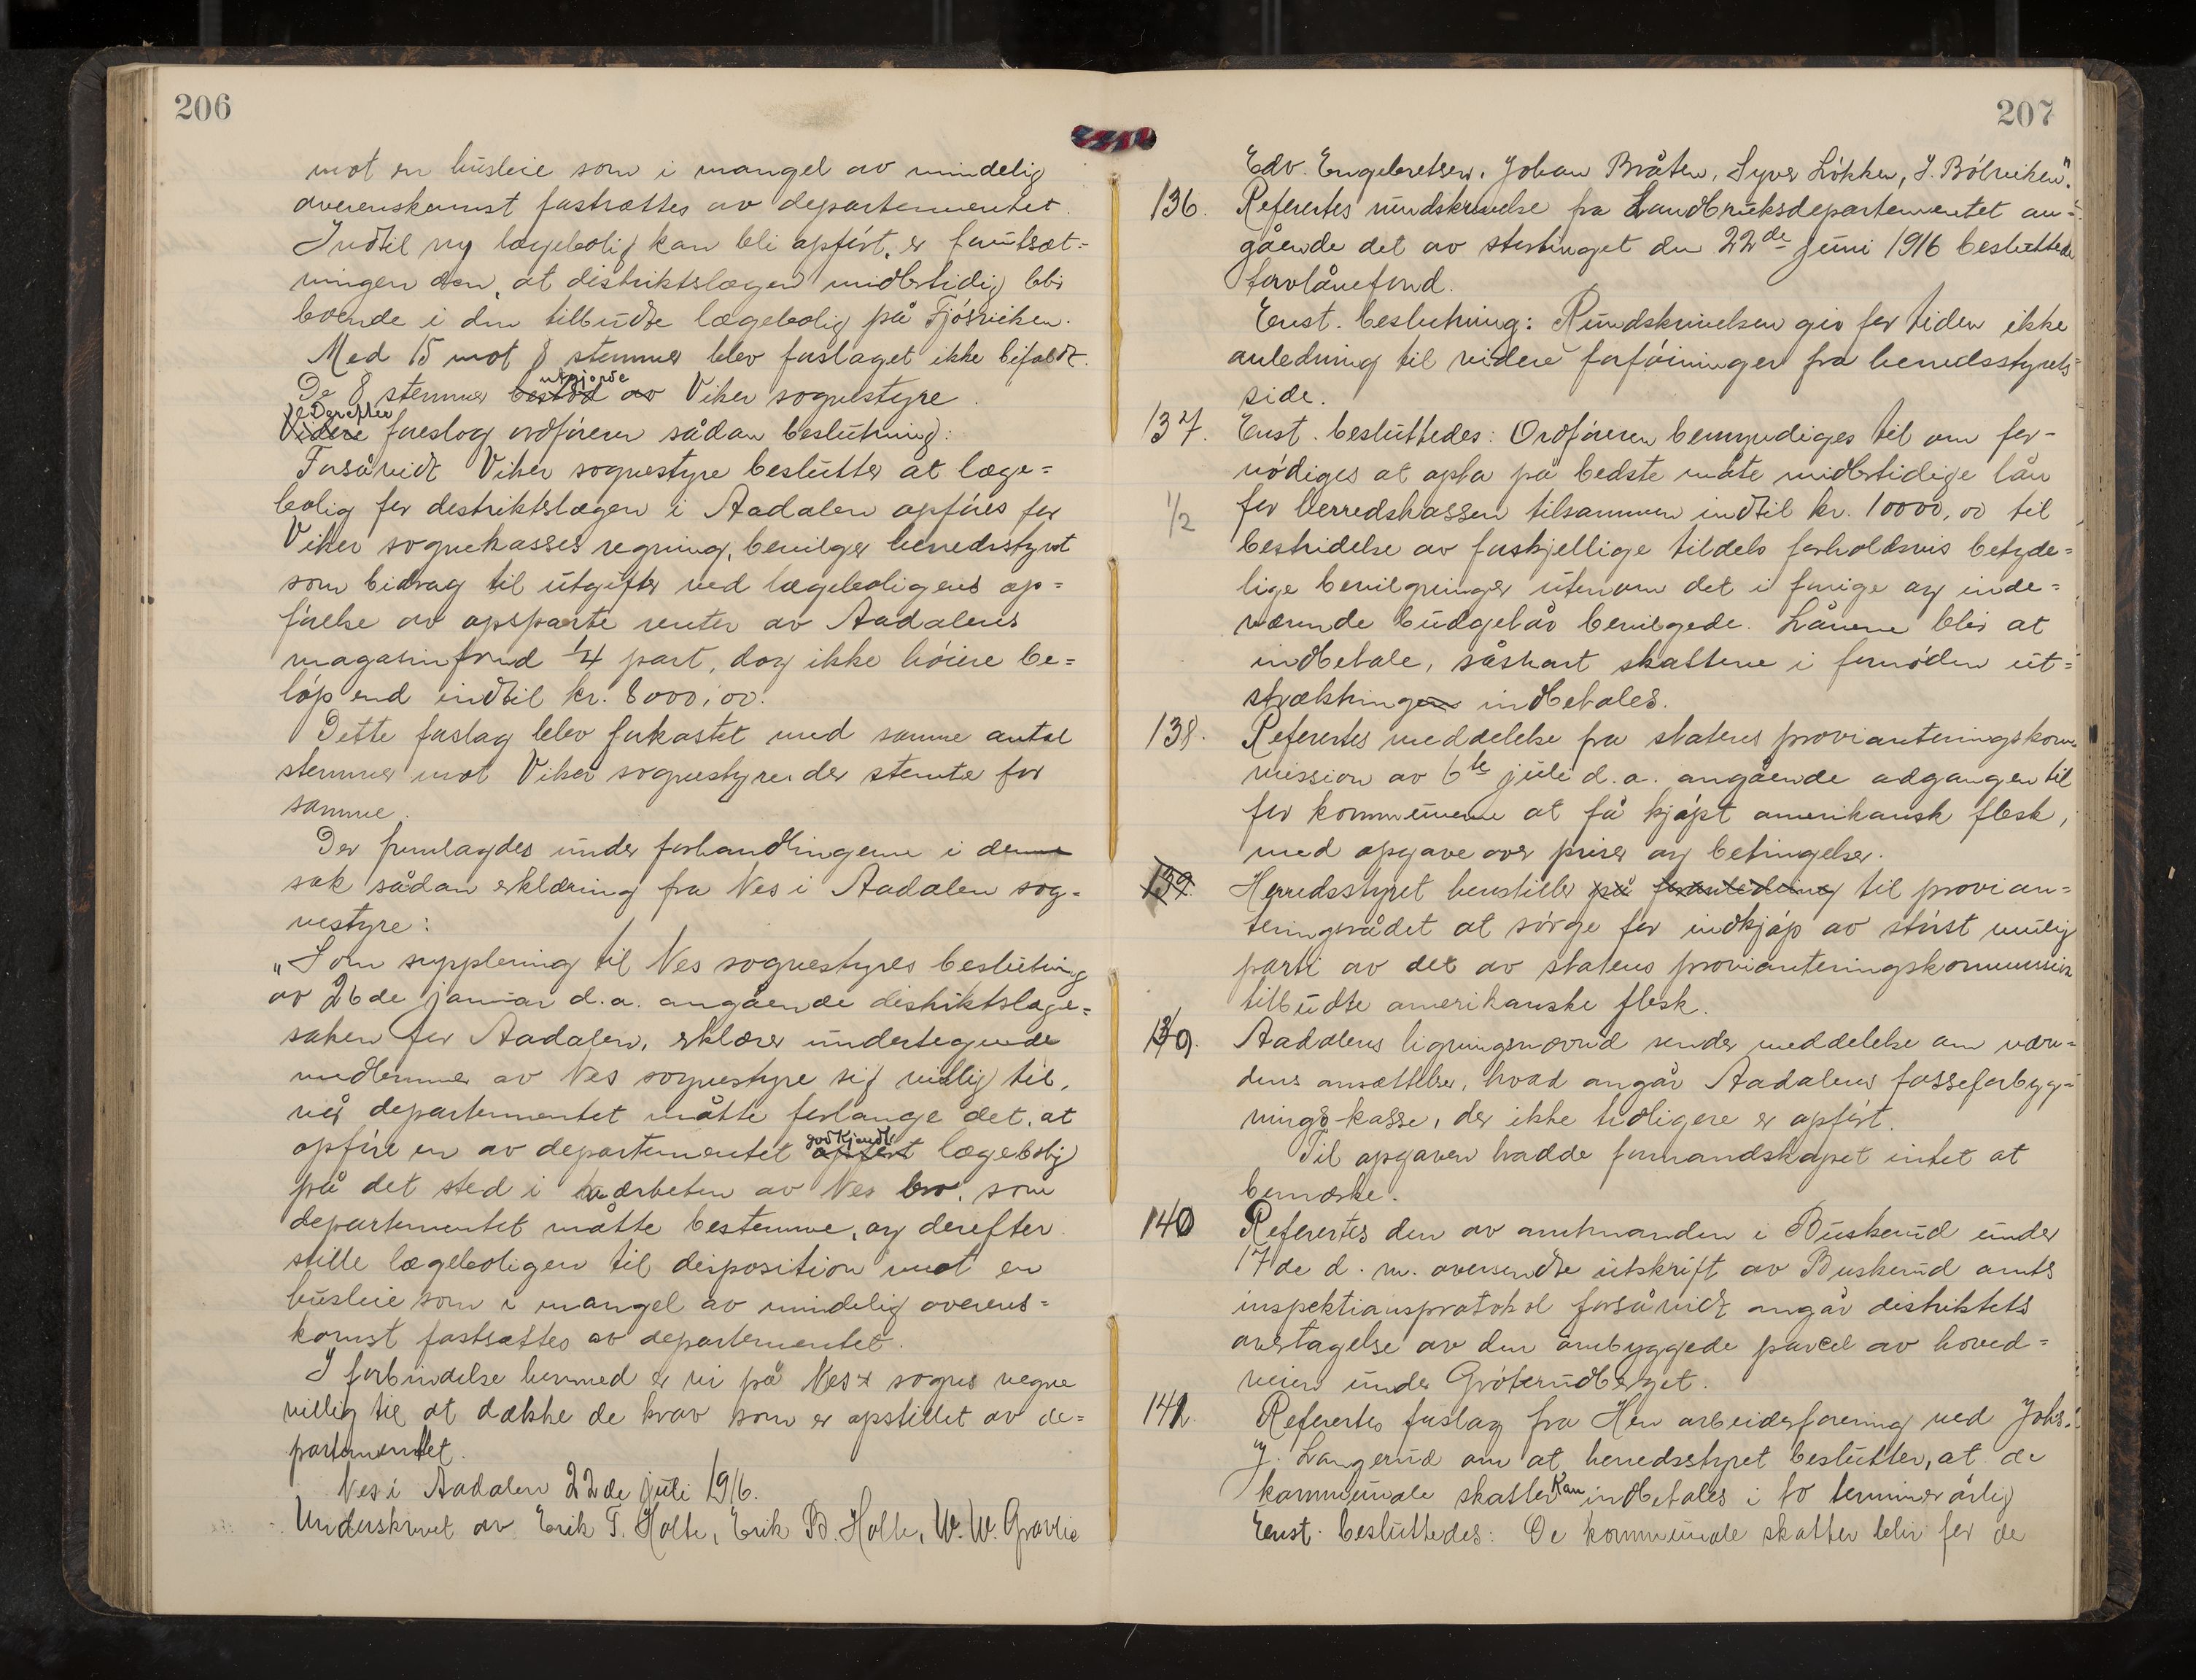 206
mot en husleie som i mangel av mindelig
overenskomst fastsættes av departementet.
Indtil ny lægebolig kan bli opført, er forutsæt=
ningen den, at distriktslægen midlertidig blir
boende i den tilbudte lægebolig på Fjøsviken.
Med 15 mot 8 stemmer blev forslaget ikke bifaldt.
De 8 stemmer bestod av utgjorde Viker sognestyre.
Videre Derefter foreslog ordføreren sådan beslutning:
Forsåvidt Viker sognestyre beslutter at læge=
bolig for distriktslægen i Aadalen opføres for
Viker sognekasses regning, bevilger herredsstyret
som bidrag til utgifter ved lægeboligens op=
førelse av opsparte renter av Aadalens
magasinfond 1/4 part, dog ikke høiere be=
løp end indtil kr. 8000,00.
Dette forslag blev forkastet med samme antal
stemmer mot Viker sognestyre der stemte for
samme.
Der fremlagdes under forhandlingerne i denne
sak sådan erklæring fra Nes i Aadalen sog=
nestyre:
„Som supplering til Nes sognestyres beslutning
av 26de januar d.a. angående distriktslæge=
saken for Aadalen, erklærer undertegnede
medlemmer av Nes sognestyre sig villig til,
når departementet måtte forlange det, at
opføre en av departementet opført godkjendt lægebolig
på det sted i nærheten av Nes bro, som
departementet måtte bestemme, og derefter
stille lægeboligen til disposition mot en
husleie som i mangel av mindelig overens=
komst fastsættes av departementet.
I forbindelse hermed er vi på Nes sogns vegne
villig til at dække de krav som er opstillet av de=
partementet.
Nes i Aadalen 22de juli 1916.
Underskrevet av Erik T. Holte, Erik B. Holte, W. W. Gravlie
207
Edv. Engebretsen, Johan Bråten, Syver Løkken, J. Bølviken".
136. Referertes rundskrivelse fra Landbruksdepartementet an=
gående det av stortinget den 22de juni 1916 besluttede
forlånefond.
Enst. beslutning: Rundskrivelsen gir for tiden ikke
anledning til videre forføininger fra herredsstyrets
side.
137. Enst. besluttedes: Ordføreren bemyndiges til om for-
nødiges at opta på bedste måte midlertidige lån
1/2 for herredskassen tilsammen indtil kr. 10000,00 til
bestridelse av forskjellige tildels forholdsvis betyde=
lige bevilgninger utenom det i forrige og inde=
værende budgetår bevilgede. Lånene blir at
indbetale, såsnart skattene i fornøden ut=
strækningen indbetales.
138. Referertes meddelelse fra statens provianteringskom=
mission av 6te juli d.a. angående adgangen til
for kommunene at få kjøpt amerikansk flesk,
med opgave over priser og betingelser.
139. Herredsstyret henstiller på foranledning til provian=
teringsrådet at sørge for indkjøp av størst mulig
parti av det av statens provianteringskommission
tilbudte amerikanske flesk.
139. Aadalens ligningsnævnd sender meddelelse om nævn=
dens ansættelser, hvad angår Aadalens fosseforbyg=
nings-kasse, der ikke tidligere er opført.
Til opgaven hadde formandskapet intet at
bemærke.
140 Referertes den av amtmanden i Buskerud under
17de d.m. oversendte utskrift av Buskerud amts
inspektionsprotokol forsåvidt angår distriktets
overtagelse av den ombyggede parcel av hoved=
veien under Gråterudberget.
141. Referertes forslag fra Hen arbeiderforening ved Johs.
J. Langerud om at herredsstyret beslutter, at de
kommunale skatter kan indbetales i to terminer årlig
Enst. besluttedes: De kommunale skatter blir for de